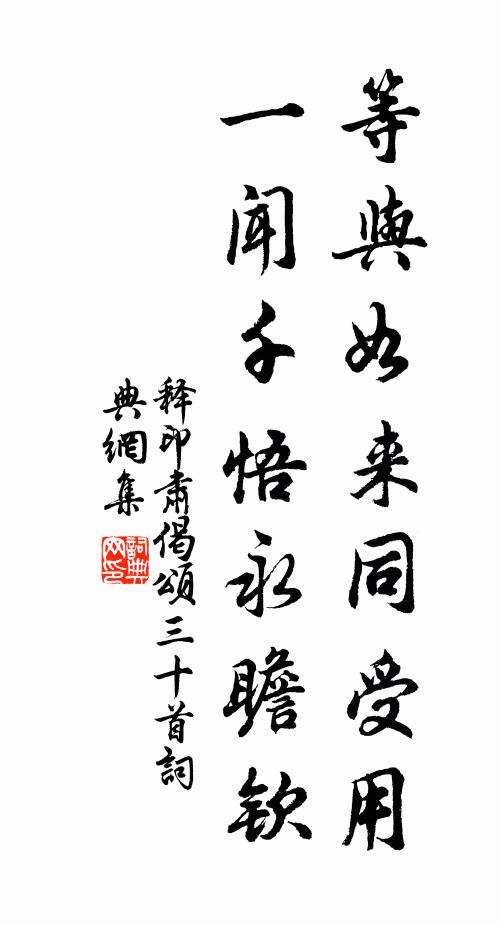 等與如来同受用
一聞千悟永瞻欽
释印肃偈頌三十首詞
典網集
詞典网印